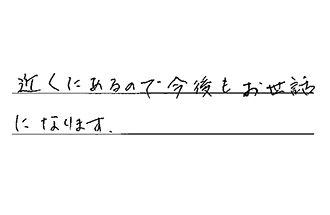 近くにあるので今後もお世話
になります.